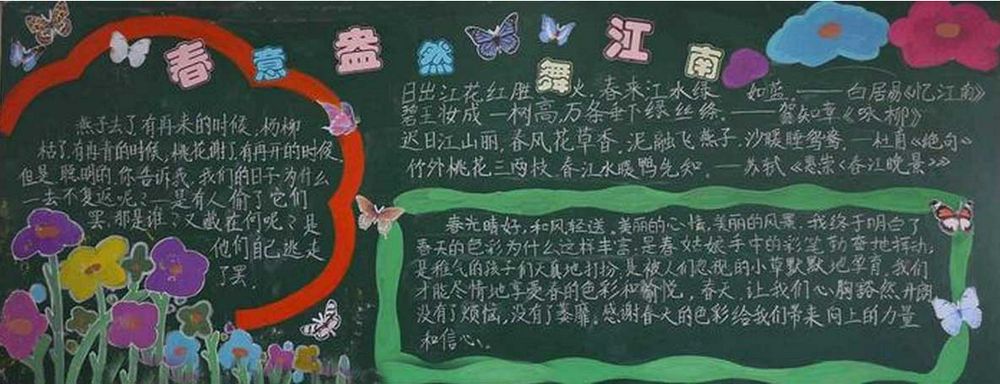 春意盎然舞江南
燕子去了，有再来的时候，杨柳
枯了，有再青的时候，桃花谢了，有再开的时候，
但是，聪明的，你告诉我，我们的日子为什么
一去不复返呢？——是有人偷了它们
罢：那是谁？又藏在何呢？是
他们自己逃走
了罢：
日出江花红胜火，春来江水绿如蓝。——白居易《忆江南》
碧玉妆成一树高，万条垂下绿丝绦。——贺知章《咏柳》
迟日江山丽，春风花草香，泥融飞燕子，沙暖睡鸳鸯。——杜甫《绝句》
竹外桃花三两枝，春江水暖鸭先知。——苏轼《惠崇〈春江晚景〉》
春光晴好，和风轻送，美丽的心情，美丽的风景，我终于明白了
春天的色彩为什么这样丰富，是春姑娘手中的彩笔勤奋地挥动；
是稚气的孩子们天真地打扮；是被人们忽视的小草默默地孕育。我们
才能尽情地享受春的色彩和愉悦。春天，让我们心胸豁然开朗
没有了烦恼，没有了萎靡。感谢春天的色彩给我们带来向上的力量
和信心。